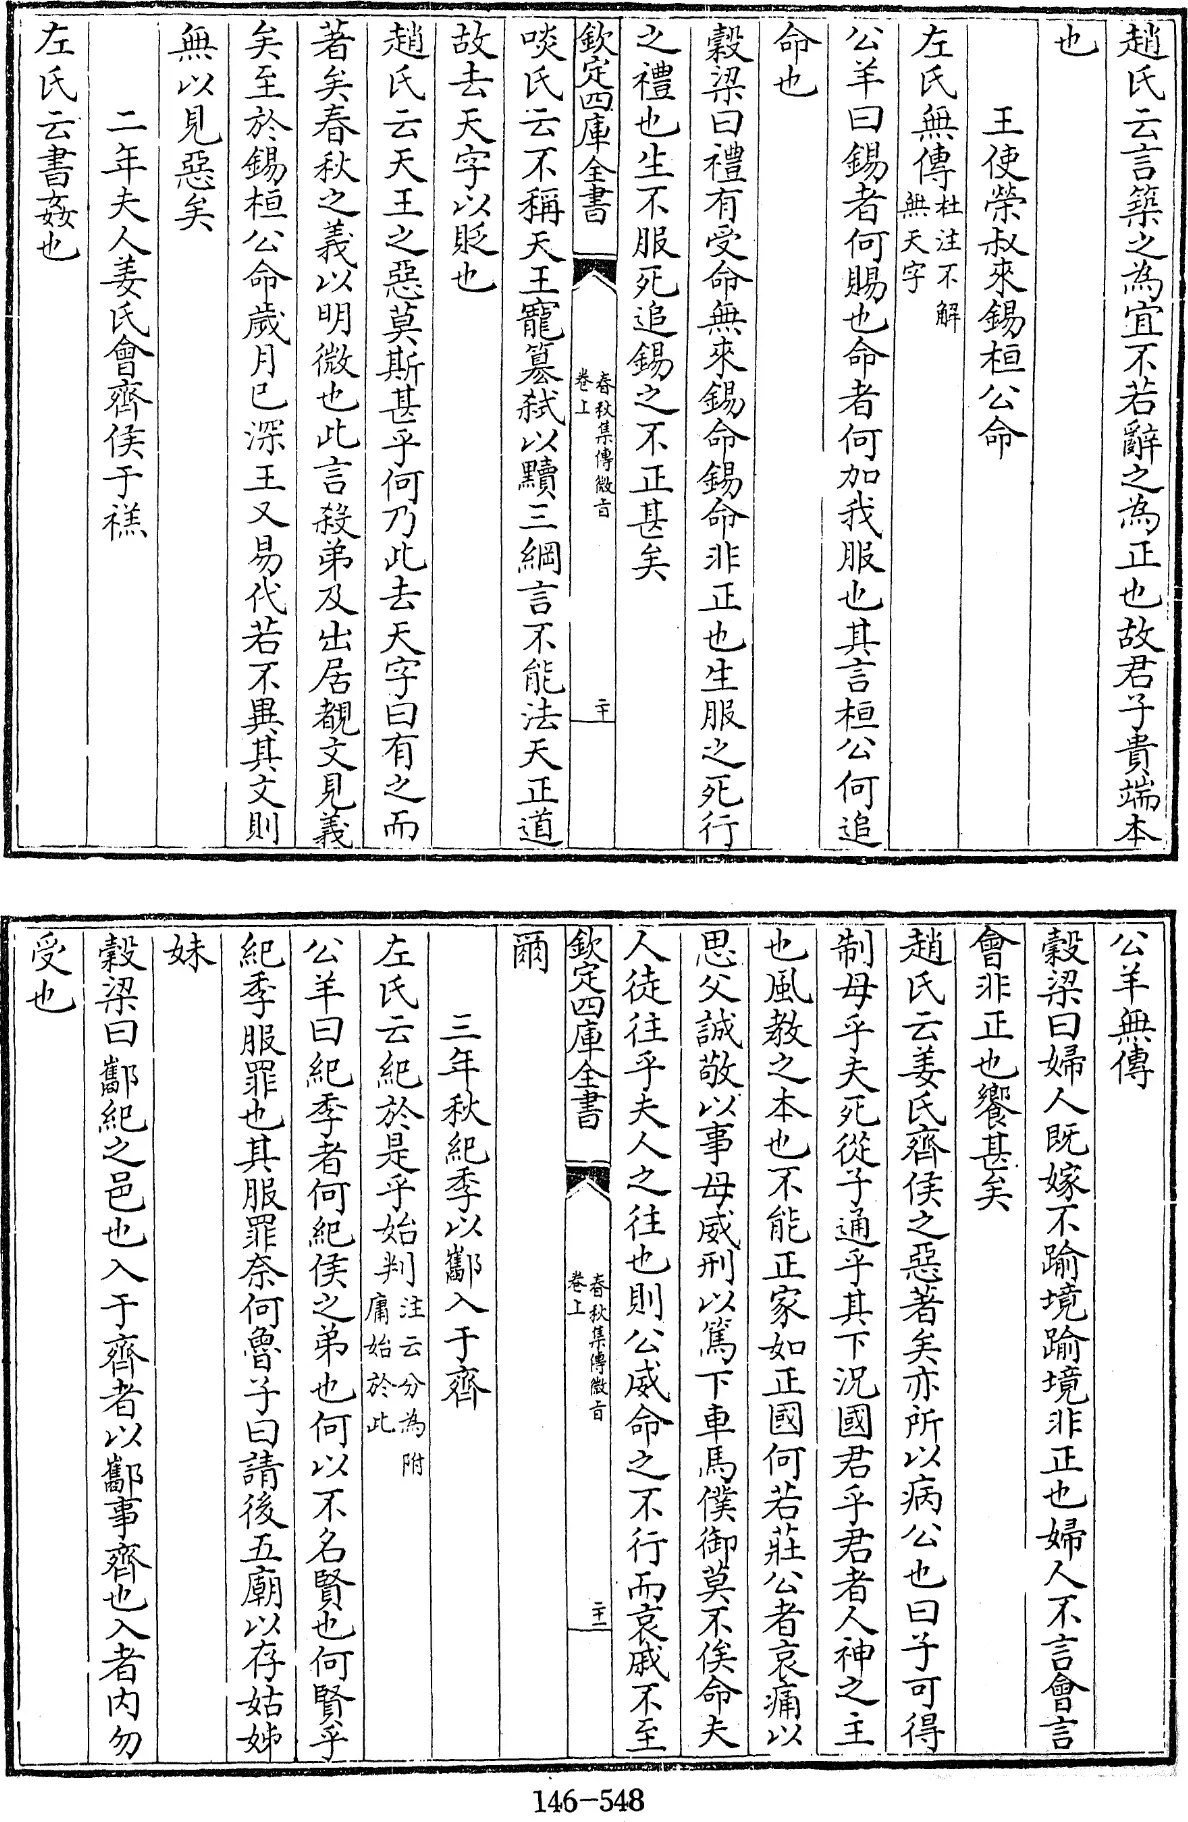 趙氏云言築之為宜不若辭之為正也故君子貴端本
也
王使榮叔來錫桓公命
左氏無傳杜注不解無天字
公羊曰錫者何賜也命者何加我服也其言桓公何追
命也
穀梁曰禮有受命無來錫命錫命非正也生服之死行
之禮也生不服死追錫之不正甚矣
欽定四庫全書
春秋集傳微旨
卷上
二十
啖氏云不稱天王寵篡弒以黷三綱言不能法天正道
故去天字以貶也
趙氏云天王之惡莫斯甚乎何乃此去天字曰有之而
著矣春秋之義以明微也此言殺弟及出居覩文見義
矣至於錫桓公命歲月已深王又易代若不異其文則
無以見惡矣
二年夫人姜氏會齊侯于禚
左氏云書姦也
公羊無傳
穀梁曰婦人既嫁不踰境踰境非正也婦人不言會言
會非正也饗甚矣
趙氏云姜氏齊侯之惡著矣亦所以病公也曰子可得
制母乎夫死從子通乎其下況國君乎君者人神之主
也風教之本也不能正家如正國何若莊公者哀痛以
思父誠敬以事母威刑以篤下車馬僕御莫不俟命夫
人徒往乎夫人之往也則公威命之不行而哀戚不至
欽定四庫全書
春秋集傳微旨
卷上
二十一
爾
三年秋紀季以酅入于齊
左氏云紀於是乎始判注云分為附庸始於此
公羊曰紀季者何紀侯之弟也何以不名賢也何賢乎
紀季服罪也其服罪奈何魯子曰請後五廟以存姑姊
妹
穀梁曰酅紀之邑也入于齊者以酅事齊也入者內勿
受也
146-548